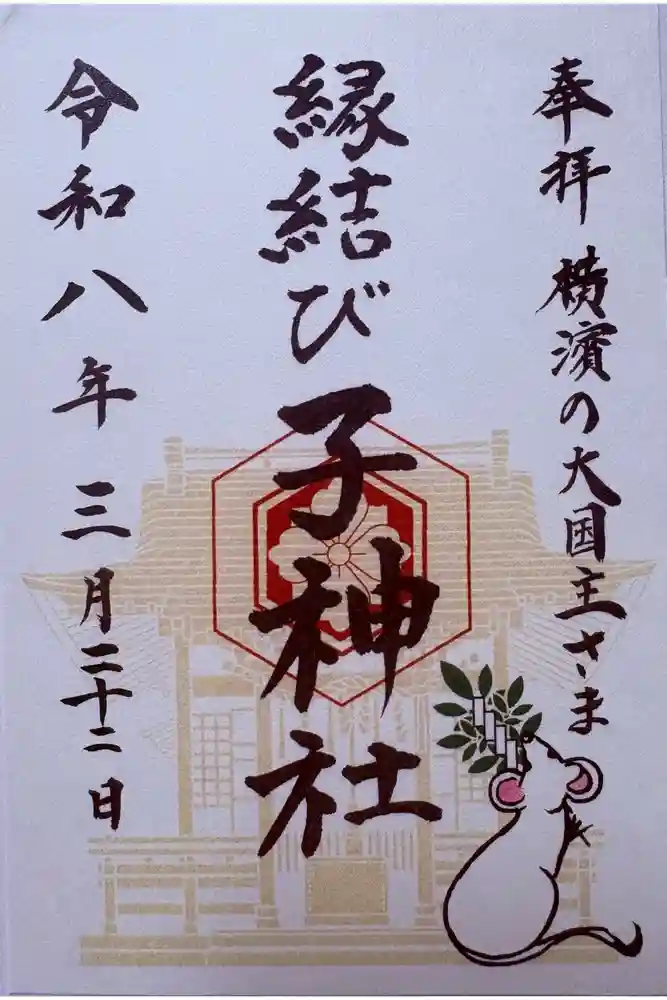 奉拝 横濱の大国主さま
縁結び 子神社
令和八年三月二十二日